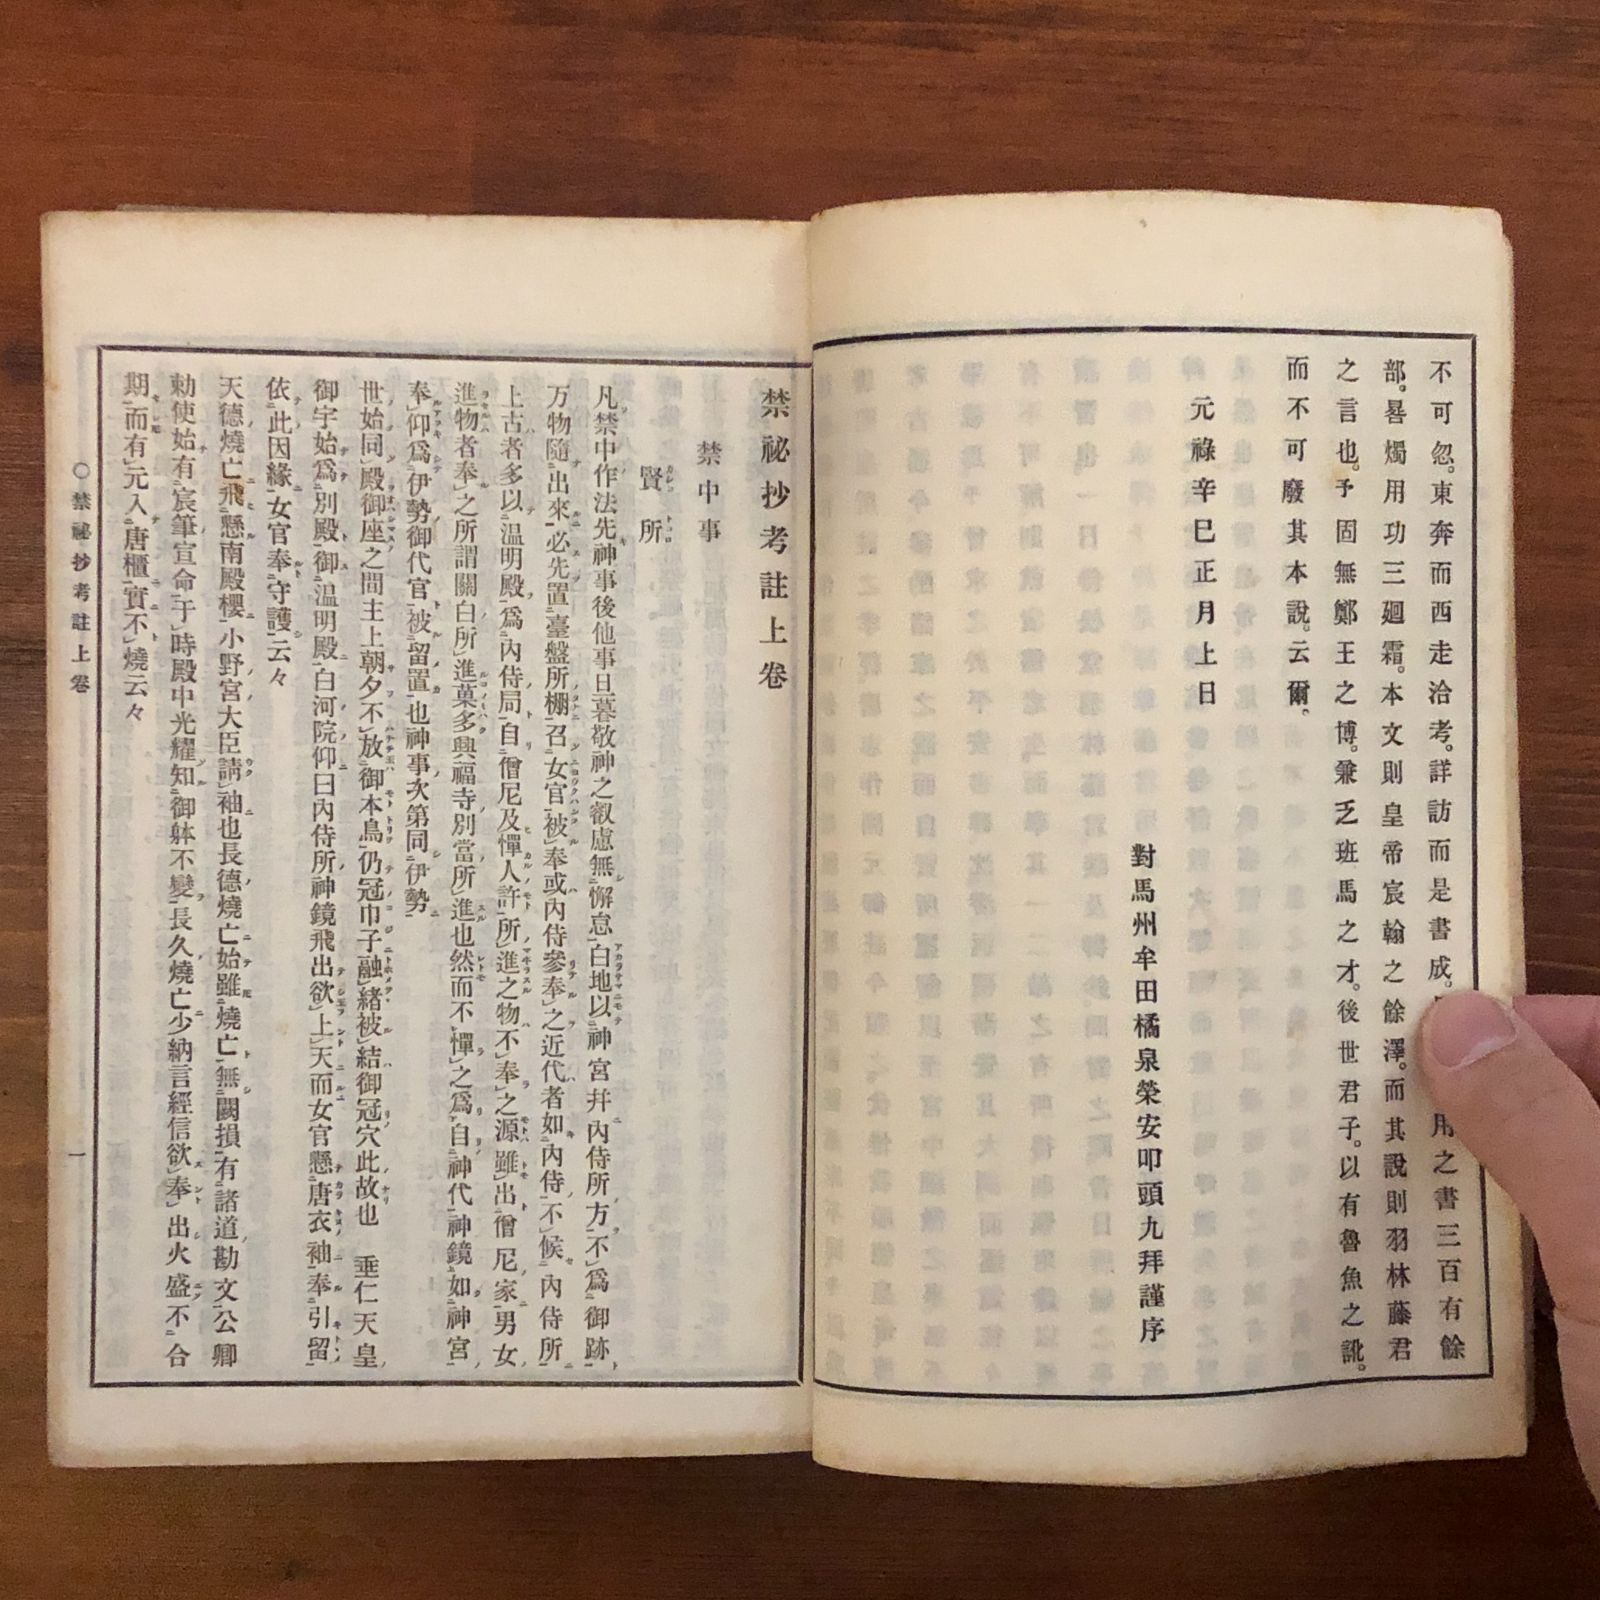 不可忽。東奔而西走洽考。詳訪而是書成。用之書三百有餘
部。晷燭用功三廻霜。本文則皇帝宸翰之餘澤。而其說則羽林藤君
之言也。予固無鄭王之博。兼乏班馬之才。後世君子。以有魯魚之訛。
而不可廢其本說。云爾。
元祿辛巳正月上日
對馬州牟田橘泉榮安叩頭九拜謹序
禁祕抄考註上卷
禁中事
賢所
凡禁中作法先神事後他事旦暮敬神之叡慮無懈怠白地以神宮幷內侍所方不爲御跡
万物隨出來必先置臺盤所棚召女官被奉或內侍參奉之近代者如內侍不候內侍所
上古者多以溫明殿爲內侍局自僧尼及憚人許所進之物不奉之源雖出僧尼家男女
進物者奉之所謂關白所進菓多興福寺別當所進也然而不憚之爲自神代神鏡如神宮
奉仰爲伊勢御代官被留置也神事次第同伊勢
世始同殿御座之間主上朝夕不放御本鳥仍冠巾子融緖被結御冠穴此故也 垂仁天皇
御宇始爲別殿御溫明殿白河院仰曰內侍所神鏡飛出欲上天而女官懸唐衣袖奉引留
依此因緣女官奉守護云々
天德燒亡飛懸南殿櫻小野宮大臣請袖也長德燒亡始雖燒亡無闕損有諸道勘文公卿
勅使始有宸筆宣命于時殿中光耀知御躰不變長久燒亡少納言經信欲奉出火盛不合
期而有元入唐櫃實不燒云々
○禁祕抄考註上卷
一